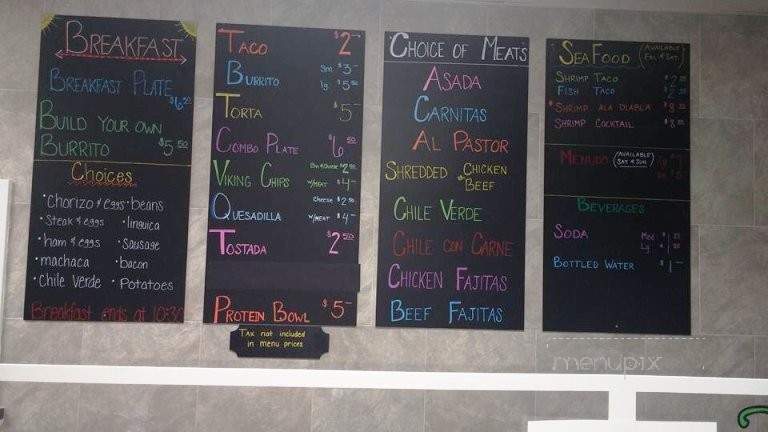 BREAKFAST
BREAKFAST PLATE
$6.50
BUILD YOUR OWN
BURRITO $5.50
Choices
• Chorizo & eggs • beans
• Steak & eggs • linguica
• ham & eggs • Sausage
• machaca • bacon
• Chile Verde • Potatoes
Breakfast ends at 10:30
TACO $2
BURRITO sm $3
lg $5
TORTA $5
COMBO PLATE $6.50
VIKING CHIPS $2.50
W/MEAT $4
QUESADILLA Cheese $2.50
W/MEAT $4
TOSTADA $2.50
PROTEIN BOWL $5
TAX not included
in menu prices
CHOICE OF MEATS
ASADA
CARNITAS
AL PASTOR
SHREDDED CHICKEN
BEEF
CHILE VERDE
CHILE CON CARNE
CHICKEN FAJITAS
BEEF FAJITAS
SEAFOOD (AVAILABLE
FRI & SAT)
SHRIMP TACO
FISH TACO
SHRIMP ALA DIABLA
SHRIMP COCKTAIL
MENUDO (AVAILABLE
SAT & SUN)
BEVERAGES
SODA Med
Lg
BOTTLED WATER $1
menupix